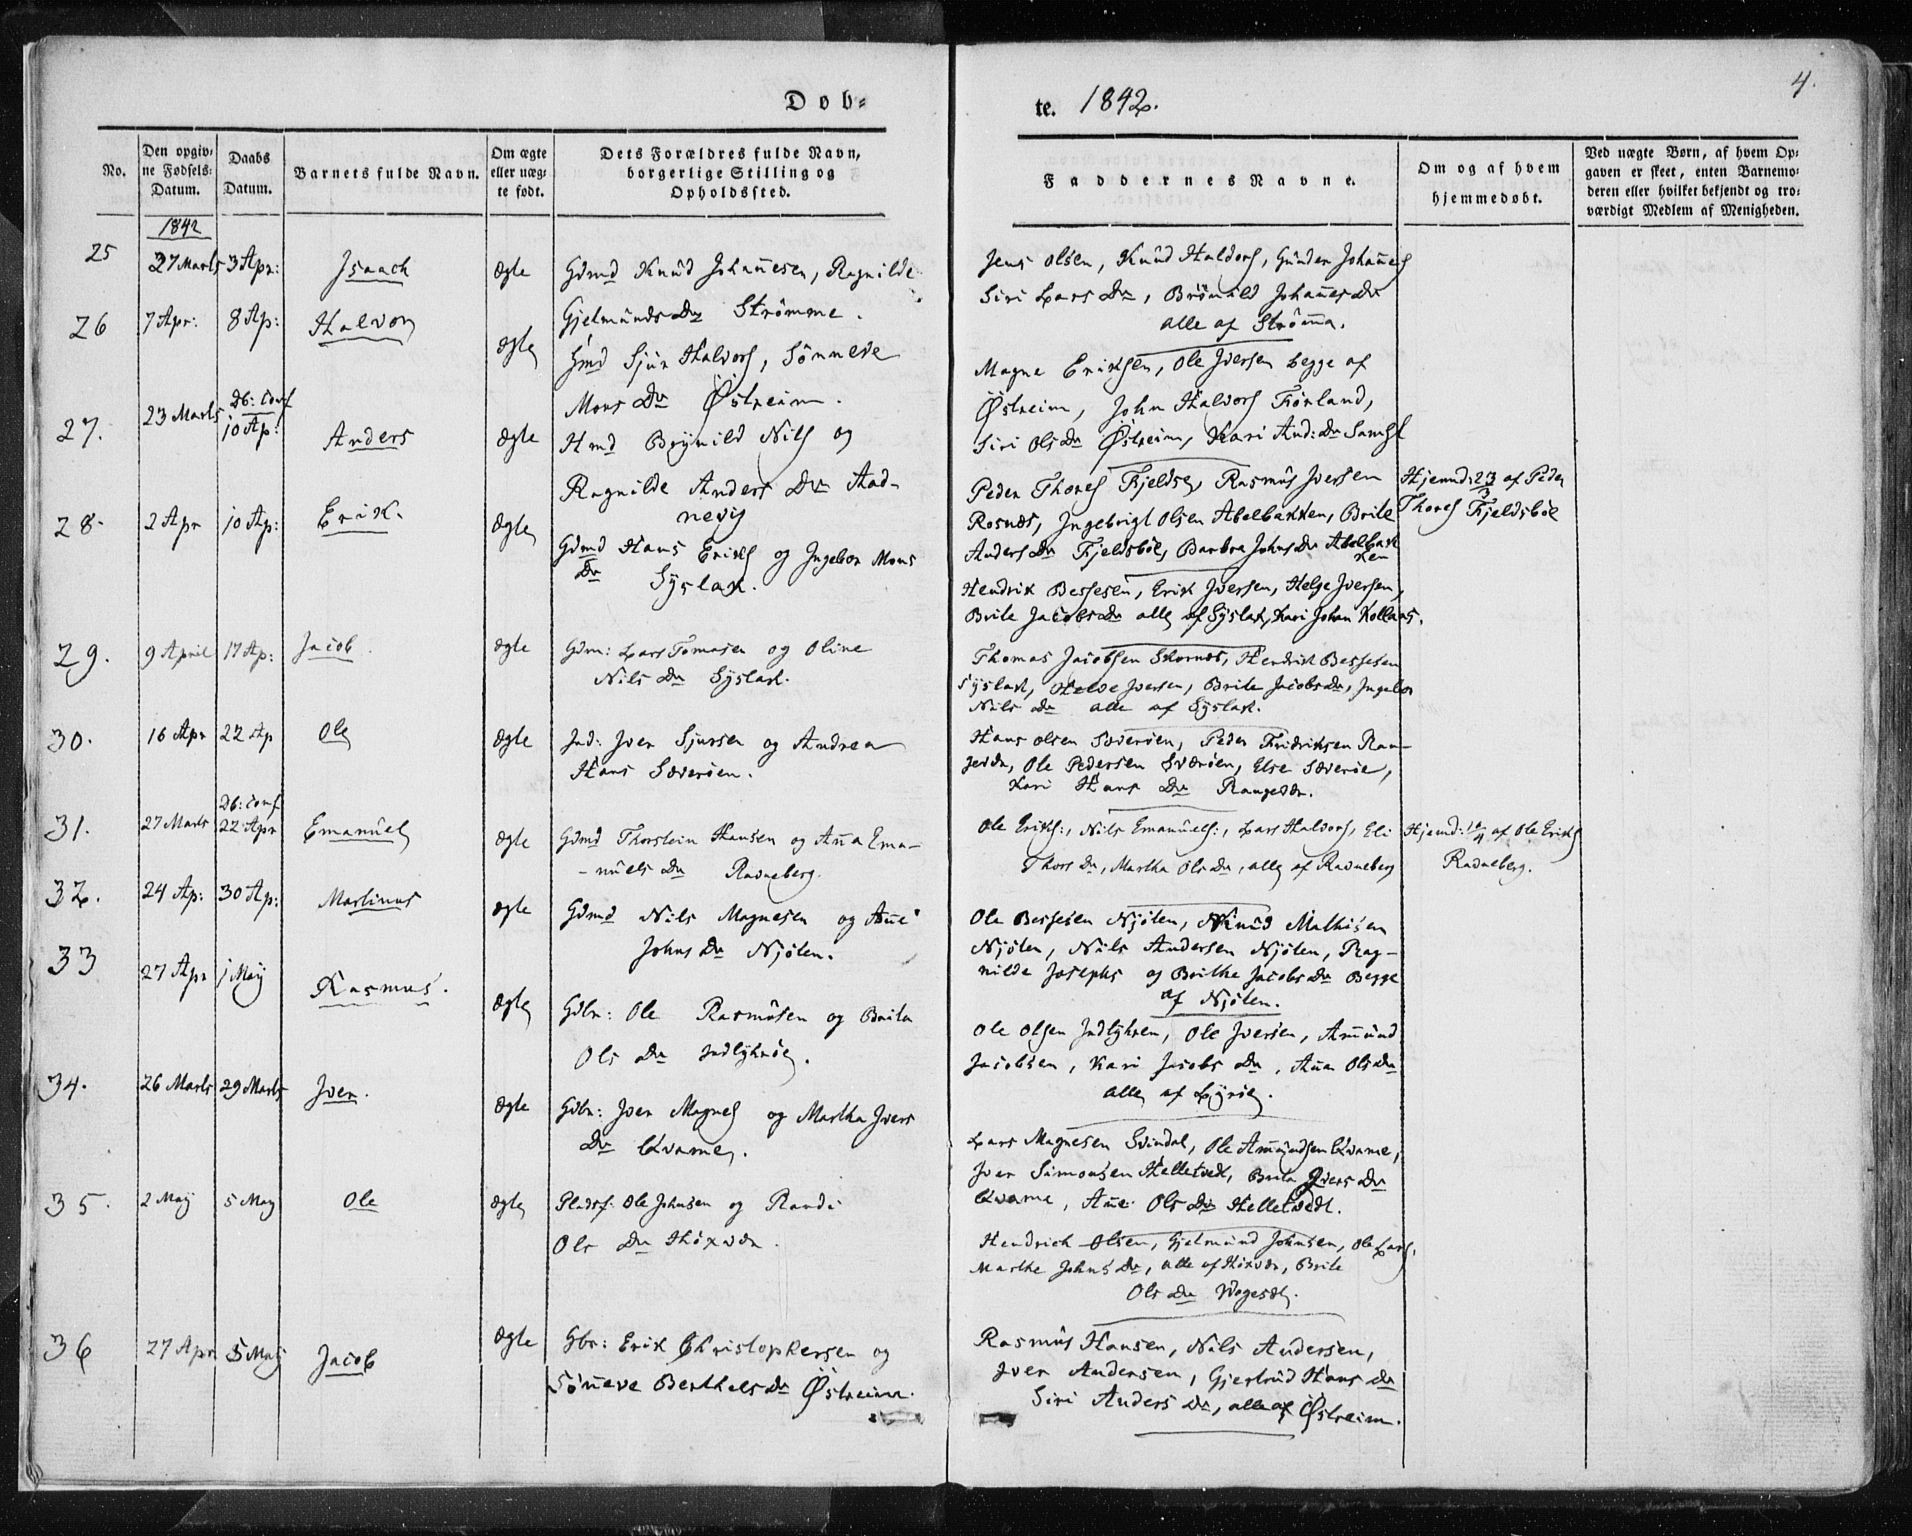 Døb=
te. 1842.
4.
No.
Den opgiv=
ne Fødsels=
Datum.
Daabs
Datum.
Barnets fulde Navn.
Om ægte
eller uæg=
te født.
Dets Forældres fulde Navn,
borgerlige Stilling og
Opholdssted.
Faddernes Navne.
Om og af hvem
hjemmedøbt.
Ved uægte Børn, af hvem Op=
gaven er skeet, enten Barnemo=
deren eller hvilket bekjendt og tro=
værdigt Medlem af Menigheden.
1842
25 27 Marts 3 Apr: Isaach Ægte Gdmd Knud Johannesen, Ragnilde
Gjelmunds Dr Strømme.
Jens Olsen, Knud Haldors, Gunder Johannes
Siri Lars Dr, Brönild Johannes Dr
alle af Strømma.
26 7 Apr: 8 Ap: Halvor Ægte Gmd Sjur Halvors, Sönneve
Mons Dr Østreim.
Magne Eriksen, Ole Iversen begge af
Østreim, John Halvors Förland,
Siri Ols Dr Østreim, Kari And: Dr
27. 23 Marts Db: Conf
10 Ap: Anders Ægte Hmd Brynild Nils og
Ragnilde Anders Dr Aad-
nevig
Peder Thores Fjeldsb, Rasmus Iversen
Rosnæs, Ingebrigt Olsen Abelbakken, Brite
Anders Dr Fjeldsböe, Barbra Johns Dr Abelbak
ken
Hjemd: 23/3 af Peder
Thores Fjeldsböe
28. 2 Apr 10 Ap: Erik. Ægte Gdmd Hans Eriks og Ingebor Mons
Dr Syslak.
Hendrik Bessesen, Erik Iversen, Helge Iversen,
Brite Jacobs Dr alle af Syslak, Kari Johan Kollaas.
29. 9 April 17 Ap: Jacob. Ægte Gdm: Lars Tomasen og Oline
Nils Dr Syslak.
Thomas Jacobsen Skornæs, Hendrik Bessesen
Syslak, Iversen, Brite Jacobs Dr, Ingebor
Nils Dr alle af Syslak.
30. 16 Apr 22 Ap Ole Ægte Ind: Iver Sjursen og Andrea
Hans Sæveröen.
Hans Olsen Sæveröen, Peder Fridriksen Ran-
gevær, Ole Pedersen Sværöen, Else Sæveröe,
Kari Hans Dr Rangevær.
31. 27 Marts Db: Conf
22 Apr Emanuel Ægte Gdmd Thorstein Hansen og Anna Ema-
-nuels Dr Ravneberg.
Ole Eriks:, Nils Emanuels:, Lars Halvors, Eli
Thors Dr, Martha Ols Dr, alle af Ravneberg
Hjemd: af Ole Eriks
Ravneberg.
32. 24 Ap: 30 Ap: Martinus Ægte Gdmd Nils Magnesen og Anne
Johns Dr Njöten.
Ole Bessesen Njöten, Knud Mathisen
Njöten, Nils Andersen Njöten, Rag-
nilde Josephs og Brithe Jacobs Dr Begge
af Njöten.
33 27 Apr 1 Maij Rasmus. Ægte Gdbr: Ole Rasmusen og Brita
Ols Dr
Ole Olsen, Ole Iversen, Amund
Jacobsen, Kari Jacobs Dr, Anna Ols Dr
alle af Lyröe.
34. 26 Marts 29 Marts Iver. Ægte Gdbr: Iver Magnes og Martha Ivers
Dr Qvamme.
Lars Magnesen Svindal, Ole Amundsen Qvamme,
Iver Simonsen Helletvedt, Brita Ivers Dr
Qvamme, Anne Ols Dr Helletvedt.
35. 2 Maij 5 Maij Ole Ægte Pladsf: Ole Johnsen og Randi
Ols Dr Höxvær.
Hendrich Olsen, Gjelmund Johnsen, Ole Lars.
Marthe Johns Dr, alle af Höxvær, Brite
Ols Dr
36 27 Apr 5 Maij Jacob Ægte Gbr: Erik Christophersen og
Sönneve Berthels Dr Østreim.
Rasmus Hansen, Nils Andersen,
Iver Andersen, Gjertrud Hans Dr
Siri Anders Dr, alle af Østreim.